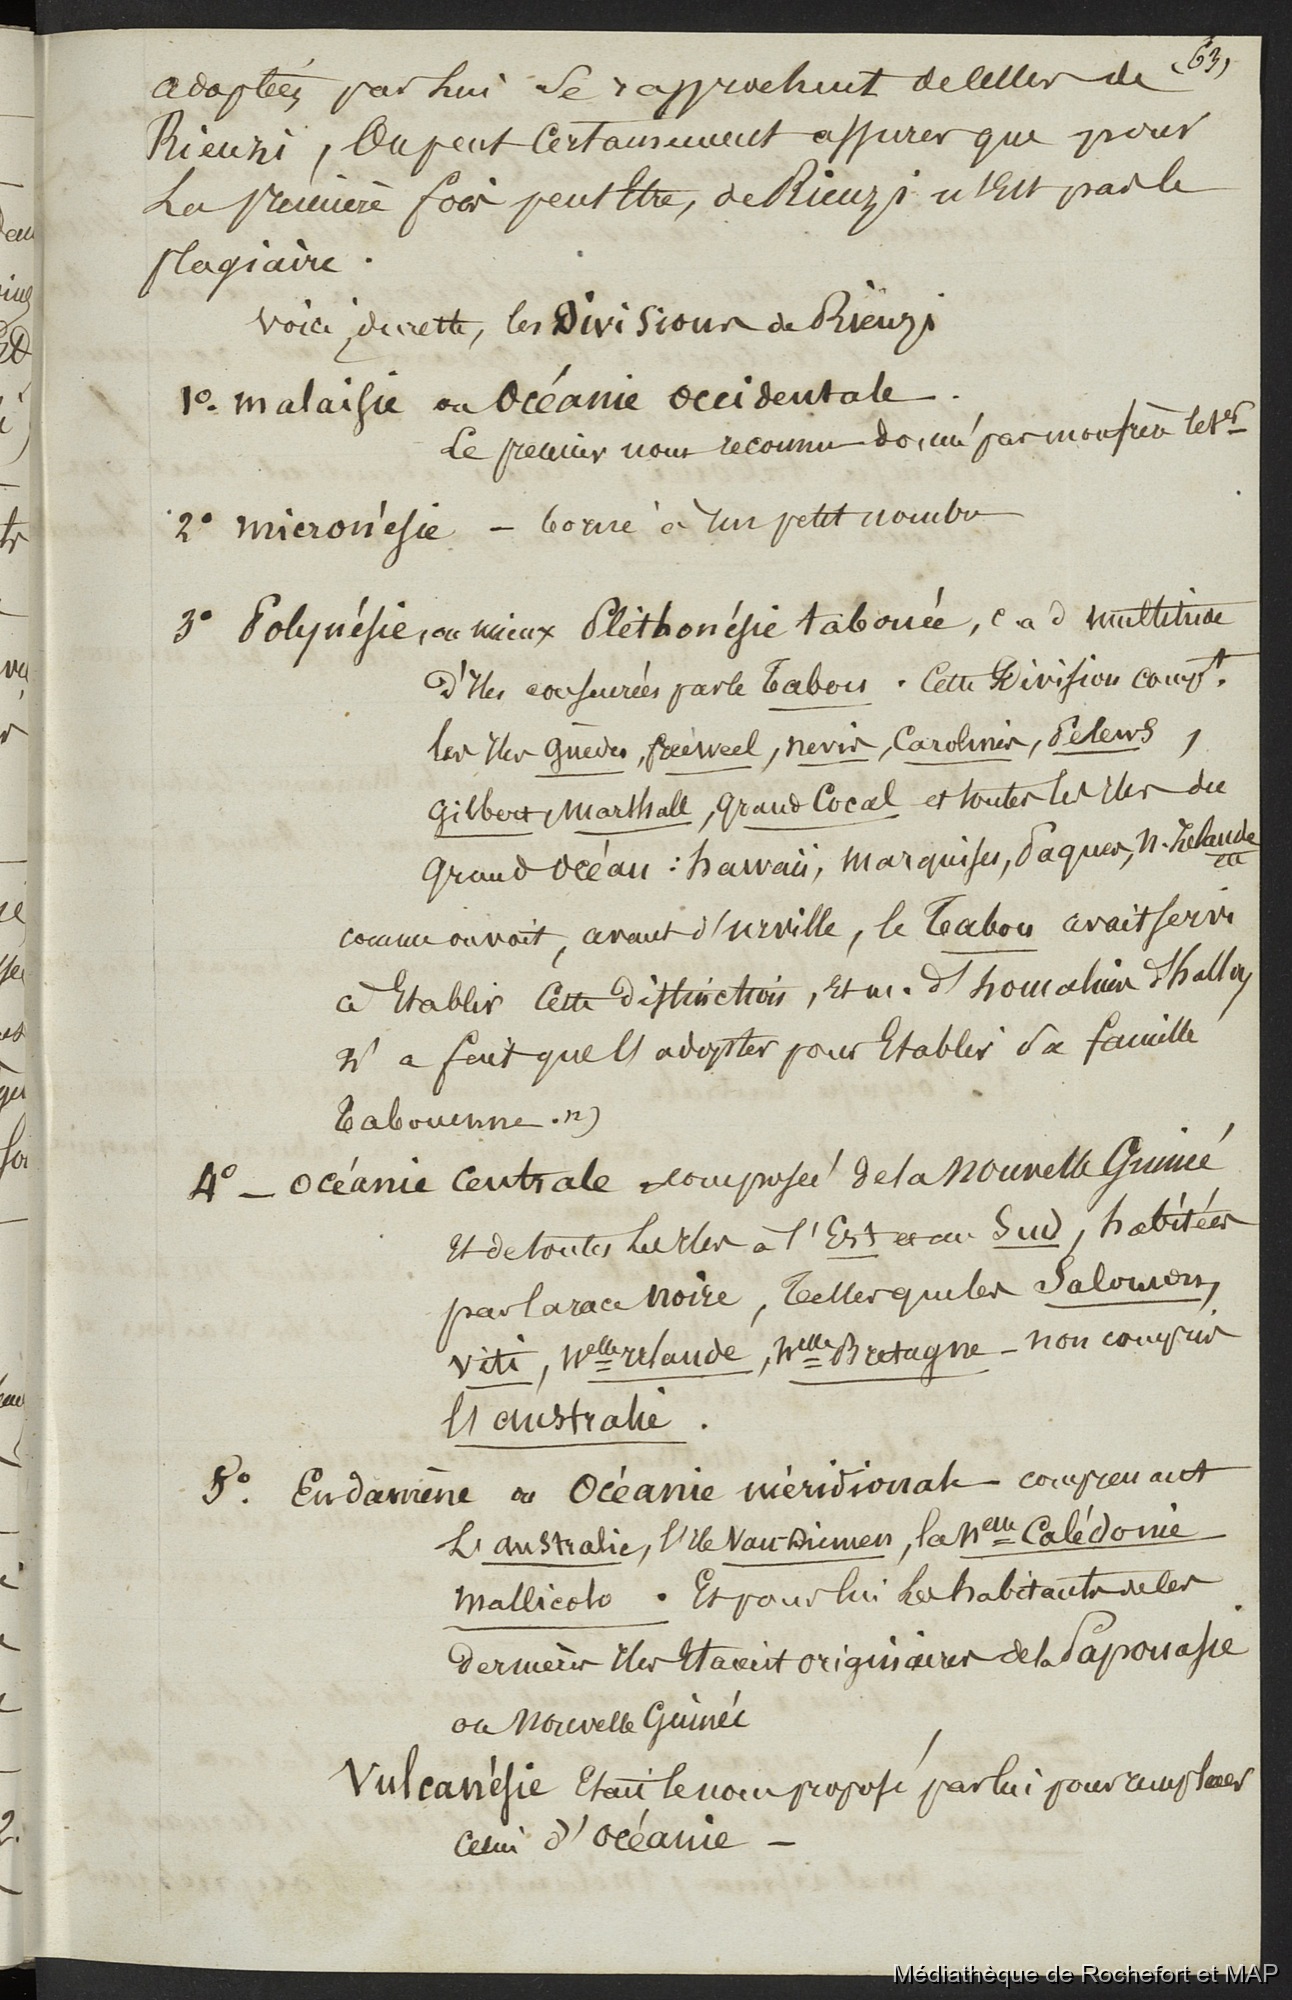 (63)
adoptées par lui se rapprochent de celles de
Rienzi, On peut certainement assurer que pour
La première fois peut Etre, de Rienzi n'Est pas le
plagiaire.
Voici, du reste, les Divisions de Rienzi
1º. malaisie ou Océanie occidentale.
Le premier nom reconnu donné par mon frère
2º micronésie — borné à un petit nombre
3º Polynésie, ou mieux Pléthonésie tabouée, c a d multitude
D'Iles par le Tabou. Cette Division compt.
les Iles Guèdes, freeweel, nevis, Carolines, Pelews,
Gilbert, Marshall, Grand Cocal et toutes les Iles du
Grand Océan : hawaii, marquises, Paques, N. Zelande
comme on voit, avant d'urville, le Tabou avait servi
à Etablir cette Distinction, Et m. d'homalius d'halloy
n'a fait que l'adopter pour Etablir Sa famille
Tabouenne.
4º — océanie Centrale composée de la Nouvelle Guinée
Et de toutes les Iles à l'Est et au Sud, habitées
par la race noire, Telles que les Salomon,
Viti, Nelle Irlande, Nelle Bretagne — non compris
l'australie.
5º. Endamène ou Océanie méridionale — comprenant
L'australie, l'Ile Van-Diemen, la Nelle Calédonie
Mallicolo. Et pour lui les habitants de ces
dernières Iles Etaient originaires de la Papouasie
ou Nouvelle Guinée
Vulcanésie Etait le nom proposé par lui pour remplacer
celui d'océanie —
Médiathèque de Rochefort et MAP